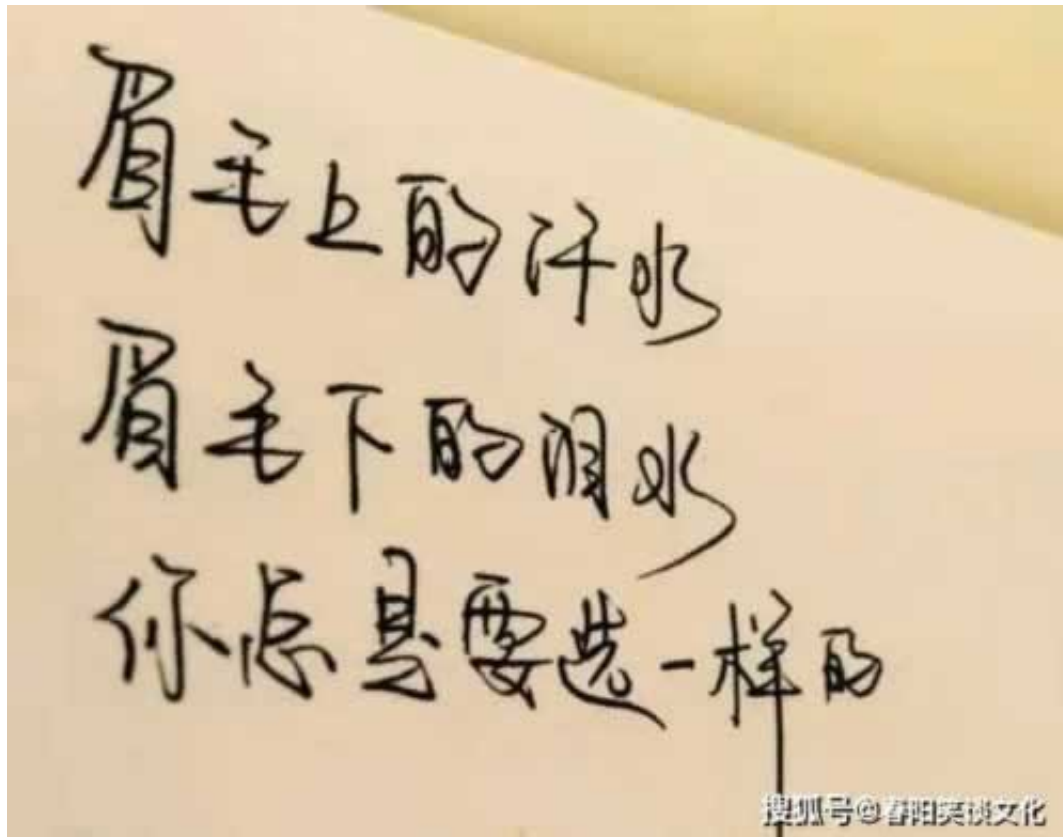 眉毛上的汗水
眉毛下的泪水
你总是要选一样的
搜狐号@春阳笑谈文化